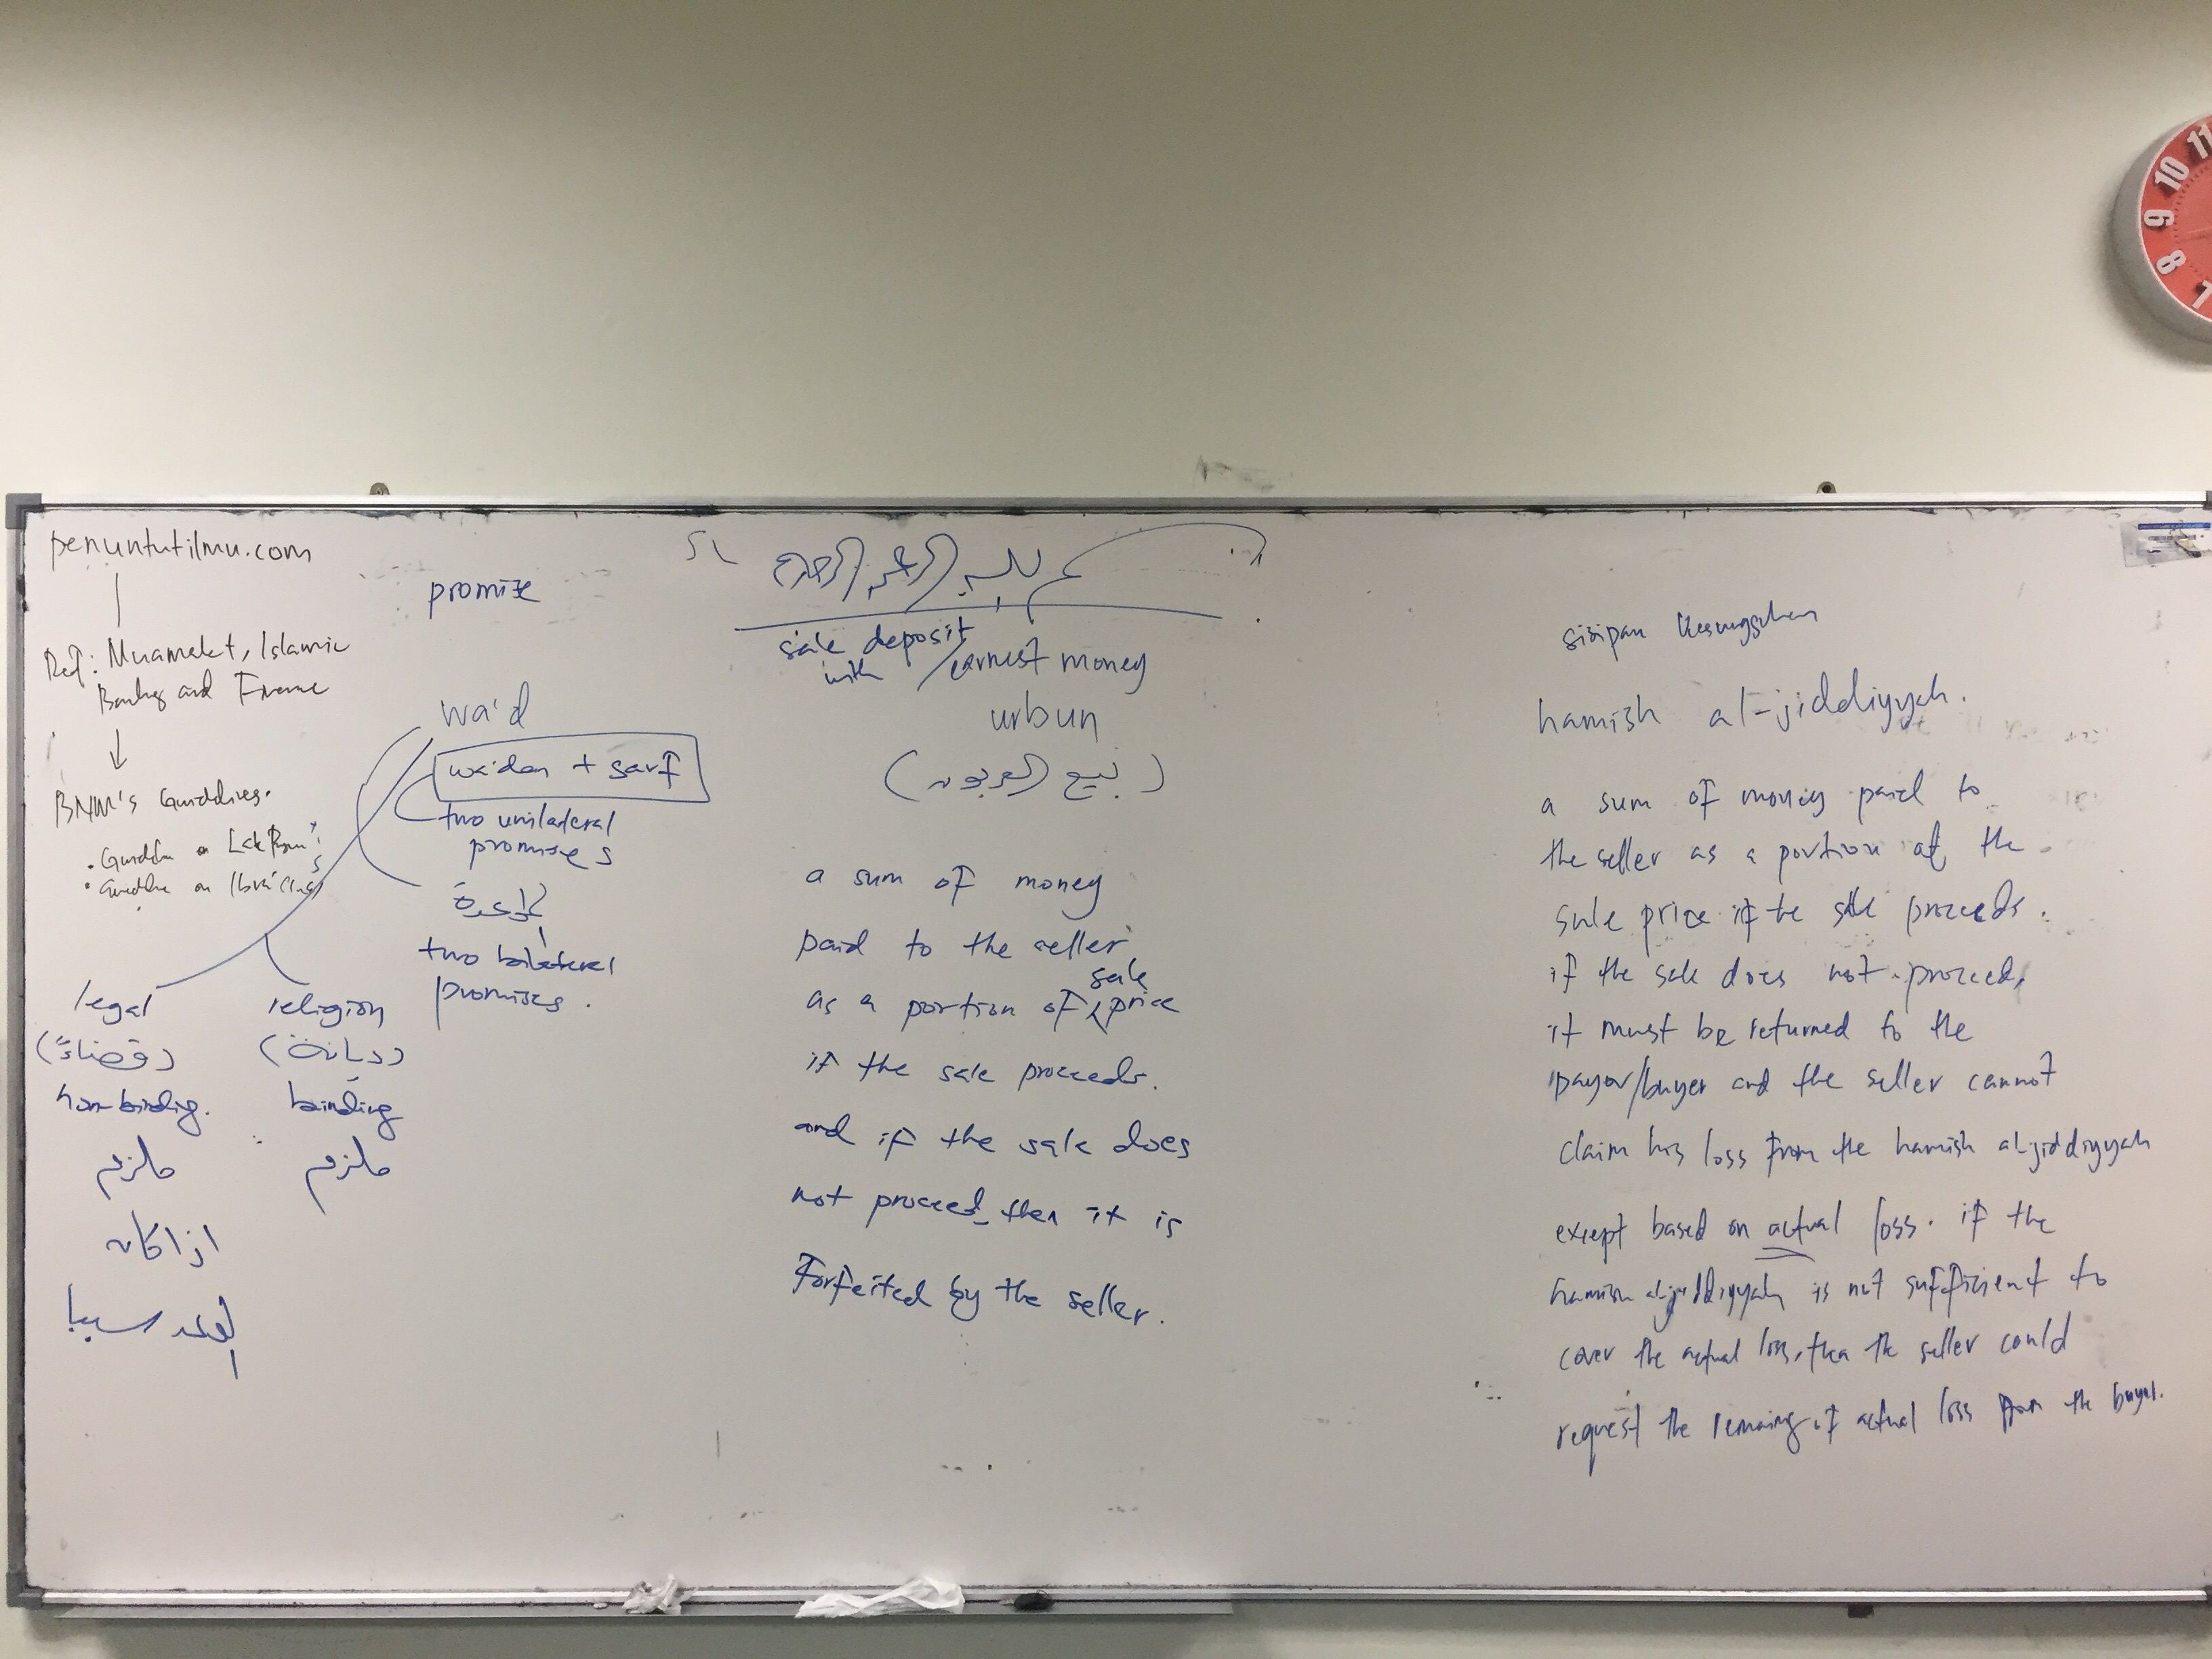 penuntutilmu.com
Ref: Muamelat, Islamic
Banking and Finance
BNM's Guidelines.
promise
wa'd
wa'dan + sarf
two unilateral
promises
two bilateral
promises.
legal
(قضاءً)
non-binding.
ملزم
اذا كان
الوعد سببا
religion
(ديانة)
binding
ملزم
بسم الله الرحمن الرحيم
sale deposit
with / earnest money
urbun
(بيع العربون)
a sum of money
paid to the seller
sale
as a portion of price
if the sale proceeds.
and if the sale does
not proceed, then it is
Forfeited by the seller.
sisipan kesungguhan
hamish al-jiddiyyah.
a sum of money paid to
the seller as a portion of the
sale price if the sale proceeds.
if the sale does not proceed,
it must be returned to the
payor/buyer and the seller cannot
claim his loss from the hamish al-jiddiyyah
except based on actual loss. if the
hamish al-jiddiyyah is not sufficient to
cover the actual loss, then the seller could
request the remaining of actual loss from the buyer.
11
10
9
8